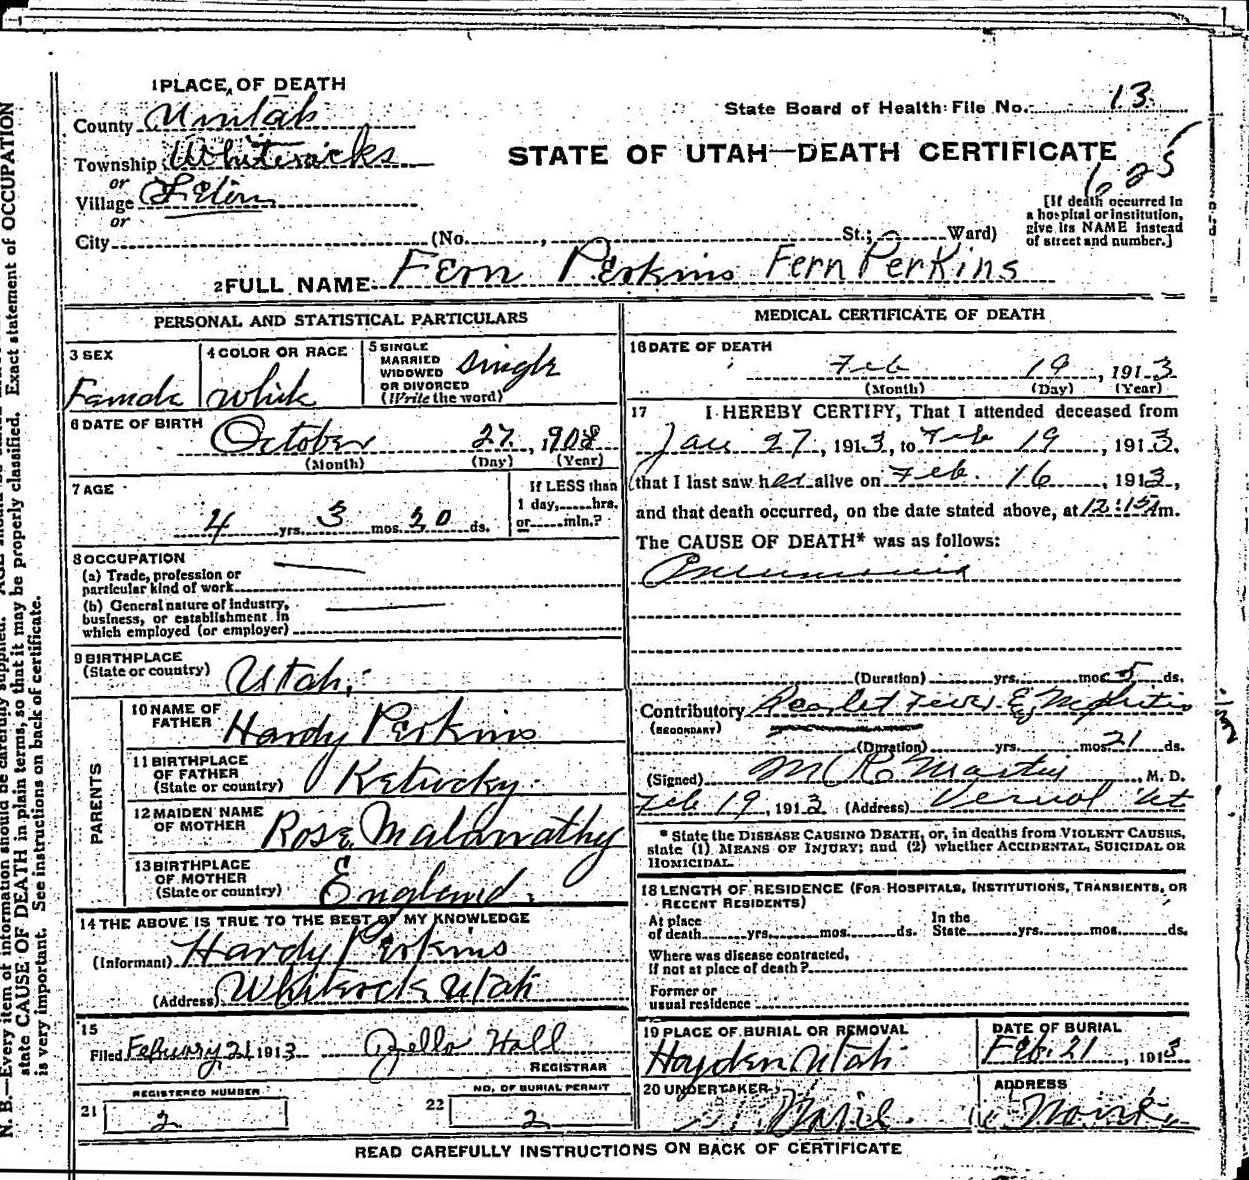 1 PLACE OF DEATH
County Uintah
State Board of Health File No. 13
Township Whiterocks
STATE OF UTAH—DEATH CERTIFICATE
625
or
Village
or
City (No. , St.; Ward)
[If death occurred in
a hospital or institution,
give its NAME instead
of street and number.]
2 FULL NAME Fern Perkins Fern Perkins
PERSONAL AND STATISTICAL PARTICULARS
3 SEX Female
4 COLOR OR RACE White
5 SINGLE
MARRIED
WIDOWED
OR DIVORCED
(Write the word) Single
6 DATE OF BIRTH October 27, 1908
(Month) (Day) (Year)
7 AGE
4 yrs. 3 mos. 20 ds.
If LESS than
1 day, hrs.
or min.?
8 OCCUPATION
(a) Trade, profession or
particular kind of work
(b) General nature of industry,
business, or establishment in
which employed (or employer)
9 BIRTHPLACE
(State or country) Utah
PARENTS
10 NAME OF
FATHER Hardy Perkins
11 BIRTHPLACE
OF FATHER
(State or country) Ketucky
12 MAIDEN NAME
OF MOTHER Rose
13 BIRTHPLACE
OF MOTHER
(State or country) England.
14 THE ABOVE IS TRUE TO THE BEST OF MY KNOWLEDGE
(Informant) Hardy Perkins
(Address) Whiterock Utah
15
Filed February 21 1913 Zella Hall
REGISTRAR
REGISTERED NUMBER
21 2
NO. OF BURIAL PERMIT
22 2
MEDICAL CERTIFICATE OF DEATH
16 DATE OF DEATH
Feb 19, 1913
(Month) (Day) (Year)
17 I HEREBY CERTIFY, That I attended deceased from
Jan 27, 1913, to Feb 19, 1913,
that I last saw her alive on Feb. 16, 1913,
and that death occurred, on the date stated above, at 12:15 A m.
The CAUSE OF DEATH* was as follows:
Pneumonia
(Duration) yrs. mos. 5 ds.
Contributory Scarlet Fever & Nephritis
(SECONDARY)
(Duration) yrs. mos. 21 ds.
(Signed) Martin, M. D.
Feb 19, 1913 (Address) Vernal Ut
* State the DISEASE CAUSING DEATH, or, in deaths from VIOLENT CAUSES,
state (1) MEANS OF INJURY; and (2) whether ACCIDENTAL, SUICIDAL OR
HOMICIDAL.
18 LENGTH OF RESIDENCE (FOR HOSPITALS, INSTITUTIONS, TRANSIENTS, OR
RECENT RESIDENTS)
At place
of death yrs. mos. ds.
In the
State yrs. mos. ds.
Where was disease contracted,
if not at place of death?
Former or
usual residence
19 PLACE OF BURIAL OR REMOVAL
Hayden, Utah
DATE OF BURIAL
Feb. 21, 1913
20 UNDERTAKER
ADDRESS
READ CAREFULLY INSTRUCTIONS ON BACK OF CERTIFICATE
N. B.—Every item of information should be carefully supplied.
state CAUSE OF DEATH in plain terms, so that it may be properly classified. Exact statement of OCCUPATION
is very important. See instructions on back of certificate.